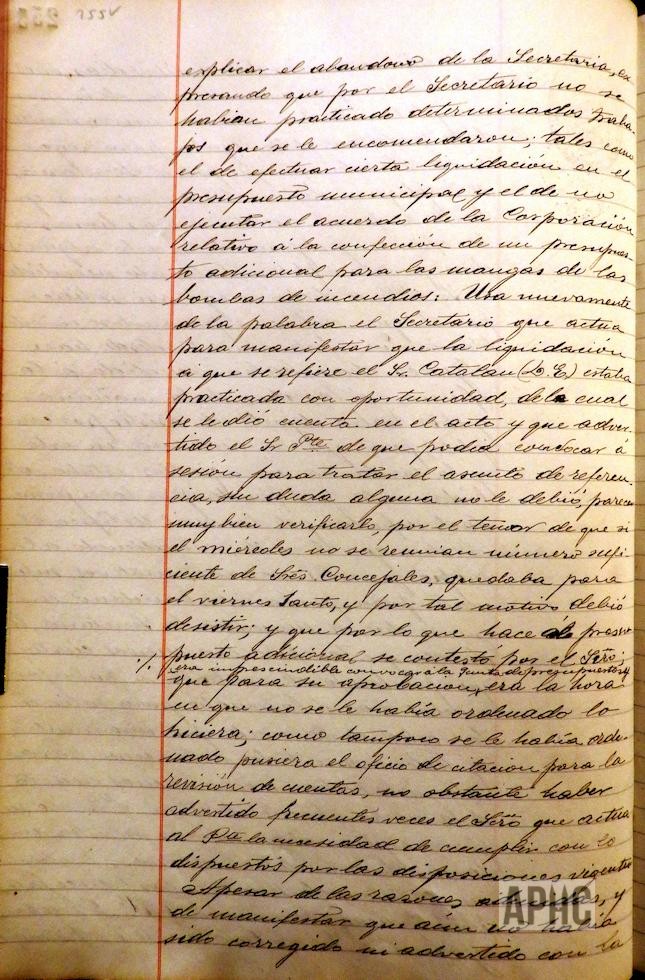 explicar el abandono de la Secretaria, ex
presando que por el Secretario no se
habian practicado determinados traba-
jos que se le encomendaron; tales como
el de efectuar cierta liquidación en el
presupuesto municipal y el de no
ejecutar el acuerdo de la Corporación
relativo á la confección de un presupues-
to adicional para las mangas de las
bombas de incendios: Usa nuevamente
de la palabra el Secretario que actua
para manifestar que la liquidación
á que se refiere el Sr. Catalan (D. E) estaba
practicada con oportunidad, de la cual
se le dió cuenta en el acto y que adver-
tido el Sr Pte de que podia convocar á
sesión para tratar el asunto de referen-
cia, sin duda alguna no le debió, parecer
muy bien verificarlo, por el temor de que si
el miércoles no se reunian número sufi
ciente de Sres Concejales, quedaba para
el viernes Santo, y por tal motivo debió
desistir; y que por lo que hace al presu
puesto adicional se contestó por el Srio;
·/. era imprescindible convocar á la Junta de presupuestos y
que para su aprobacion, era la hora
en que no se le habia ordenado lo
hiciera; como tampoco se le habia orde-
nado pusiera el oficio de citacion para la
revisión de cuentas, no obstante haber
advertido frecuentes veces el Srio que actua
al Pte la necesidad de cumplir con lo
dispuestos por las disposiciones vigentes
Apesar de las razones aducidas, y
de manifestar que aún no habia
sido corregido ni advertido con la
APHC